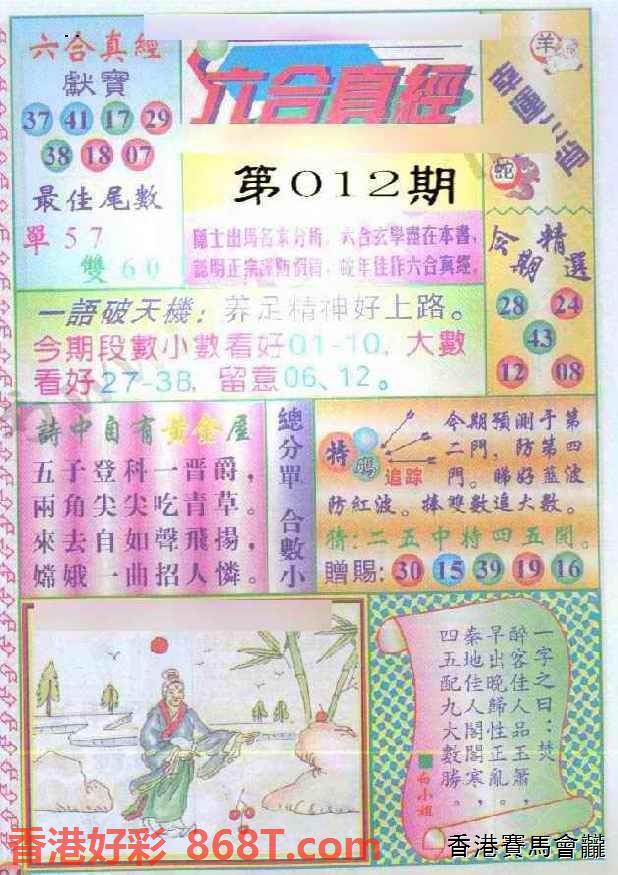 六合真經
獻寶
37 41 17 29
38 18 07
最佳尾數
單57
雙60
六合真經
第012期
羊
蛇
今期精選
28 24
43
12 08
一語破天機：养足精神好上路。
今期段數小數看好01-10，大數
看好27-38，留意06、12。
詩中自有黃金屋
五子登科一晋爵，
兩角尖尖吃青草。
來去自如聲飛揚，
嫦娥一曲招人憐。
總分單 合數小
特碼
追踪
今期預測于第
二門，防第四
門。睇好藍波
防紅波。捧雙數追大數。
猜：二五中特四五開。
贈賜：30 15 39 19 16
一字之曰：焚
醉客佳人品玉簫，
早出晚歸性正亂。
秦地佳人閣閣寒，
四五配九大數勝。
白小姐
香港好彩 868T.com
香港賽馬會